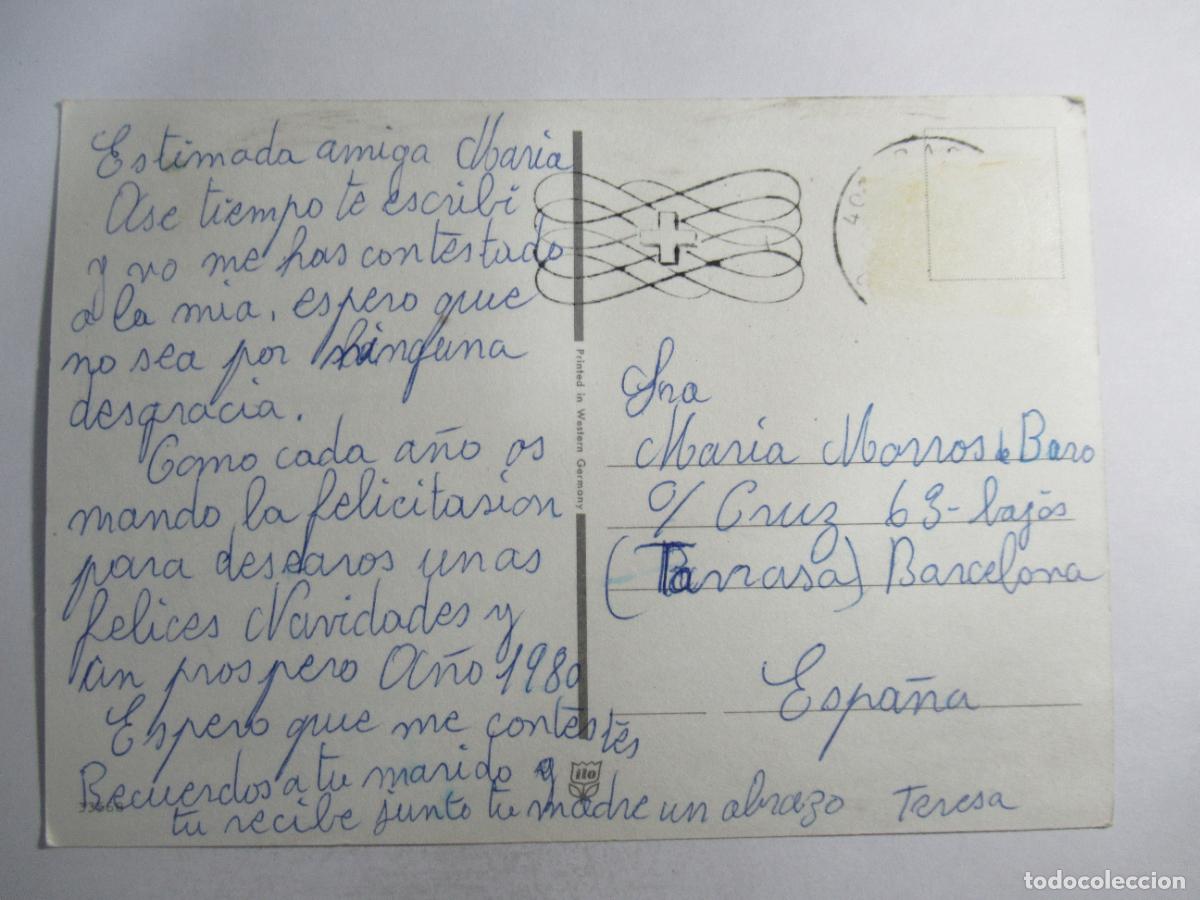 Estimada amiga Maria
Ase tiempo te escribi
y no me has contestado
a la mia, espero que
no sea por ninguna
desgracia.
Como cada año os
mando la felicitasión
para desearos unas
felices Navidades y
un prospero Año 1980
Espero que me contestés
Recuerdos a tu marido y
tu recibe junto tu madre un abrazo Teresa
33668
ito
Printed in Western Germany
Sra
Maria Morros de Baro
c/ Cruz 63-bajos
(Tarrasa) Barcelona
España
todocoleccion